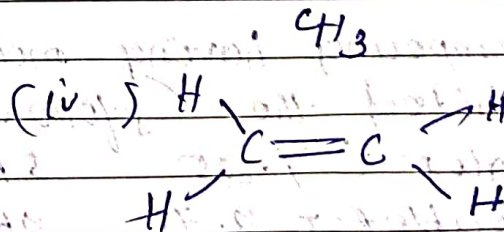 CH3
(iv) H H
C=C
H H